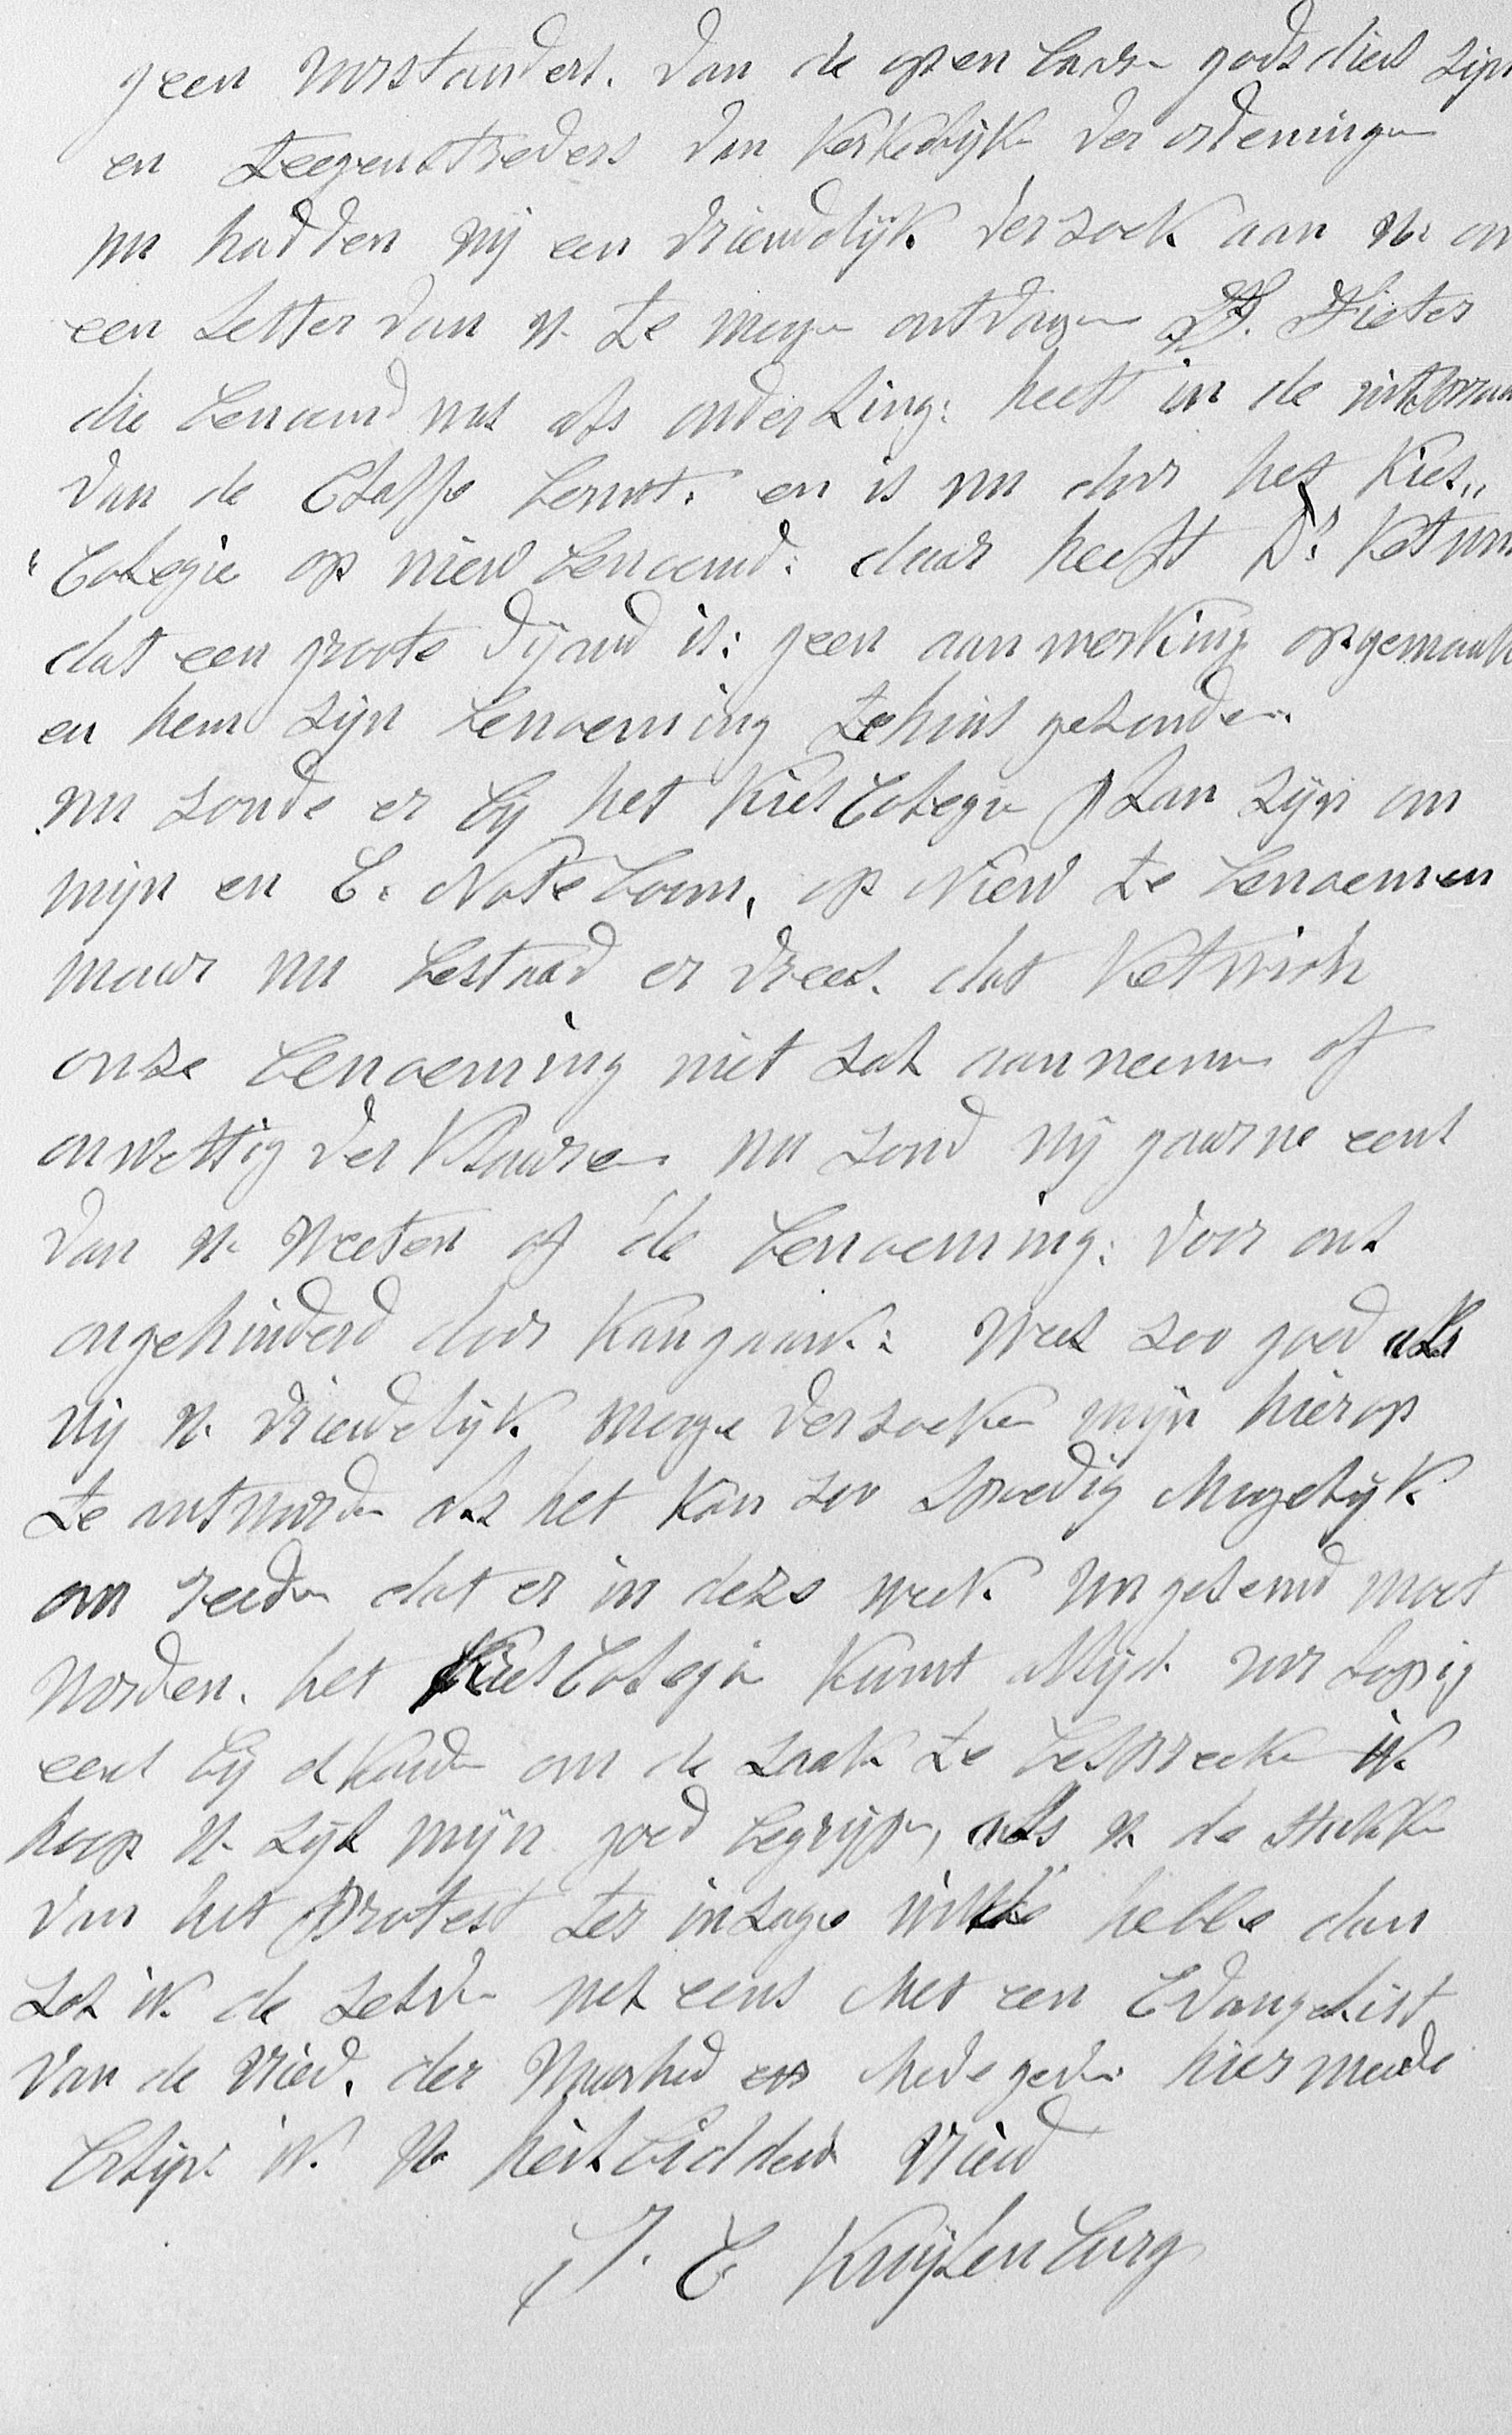 geen voorstanders. van de open baare godsdiens sijn
en teegenstreders van Kerkelijke ver ordeningen
nu hadden wij een vriendelijk versoek aan u. om
een letter van u. te mogen ontvangen D. Fieter
die benoemd was als ouderling: heeft in de
van de Classe berust. en is nu door het Kies„
„Colegie op niew benoemd: daar heeft Ds.
dat een groote vijand is: geen aanmerking op gemaakt
en hem sijn benoeming tehuis gesonden.
nu soude er bij het Kies Colegie plan sijn om
mijn en C. Noteboom, op Niew te benoemen
maar nu bestaad er vrees. dat Ketwich
onze benoeming niet sal aanneemen of
onwettig verklaaren nu soud wij gaarne eens
van u. weeten of de benoeming: voor ons
ongehinderd door kan gaan.: Wees soo goed als
wij u. vriendelijk moge versoeken mijn hierop
te antwoorden als het kan soo spoedig Mogelijk
om reeden dat er in deze week in gesend moet
worden. het Kies Colegie kwam voorlopig
eens bij elkander om de saak te bespreeken ik
hoop u. sijt mijn goed begrijpen, als u. de stukken
van het Protest ter insage wilde hebbe dan
sal ik de selve wel eens met een Evangelist
van de Vried. der Waarheid mede geven hiermeede
blijve ik. u heilbiddende Vriend
J. C Kuijlenburg